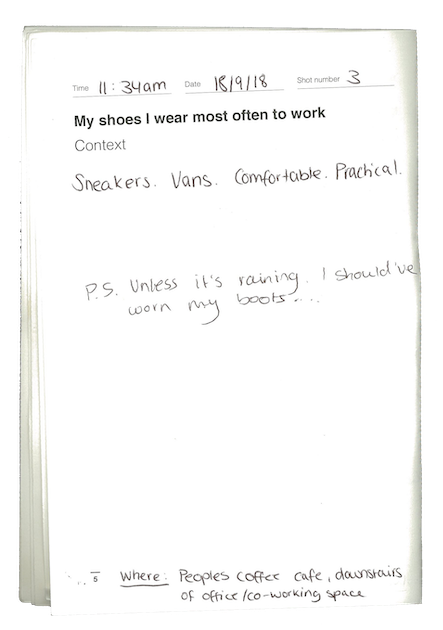 Time 11:34am Date 18/9/18 Shot number 3
My shoes I wear most often to work
Context
Sneakers. Vans. Comfortable. Practical.
P.S. Unless it's raining. I should've
worn my boots....
5 Where: Peoples Coffee cafe, downstairs
of office/co-working space